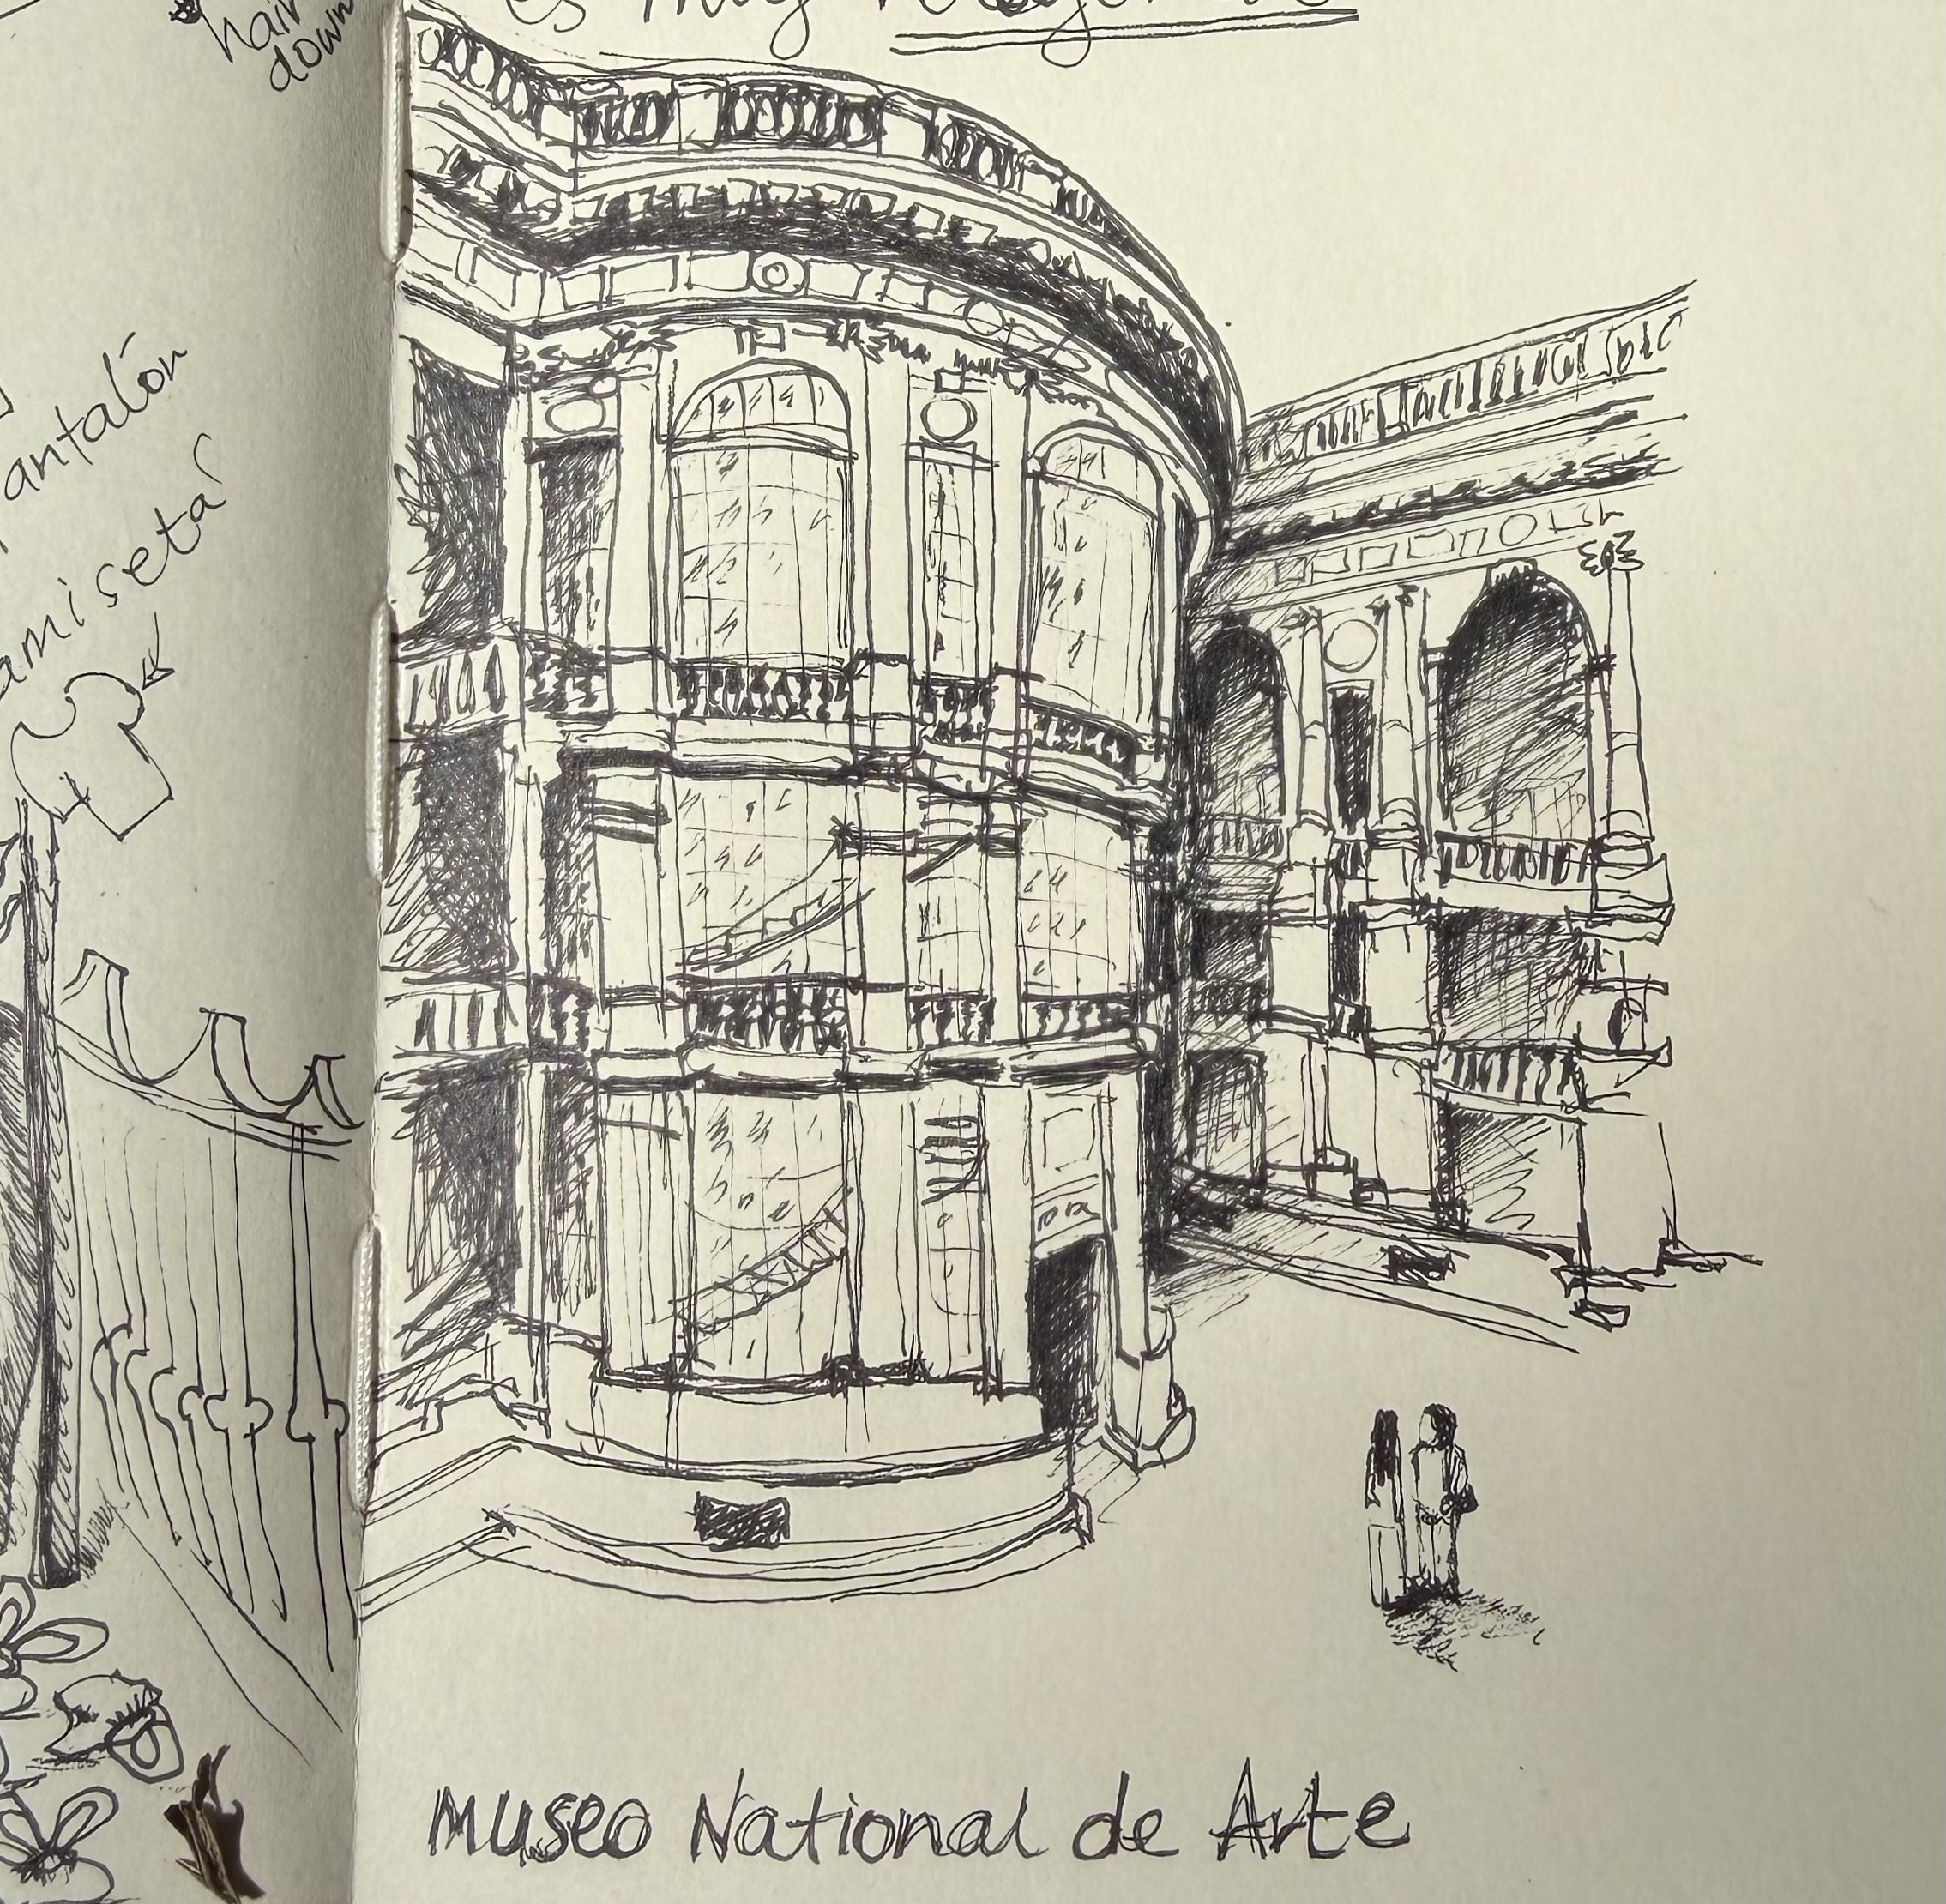 hair
down
es muy
pantalón
camiseta
Museo National de Arte